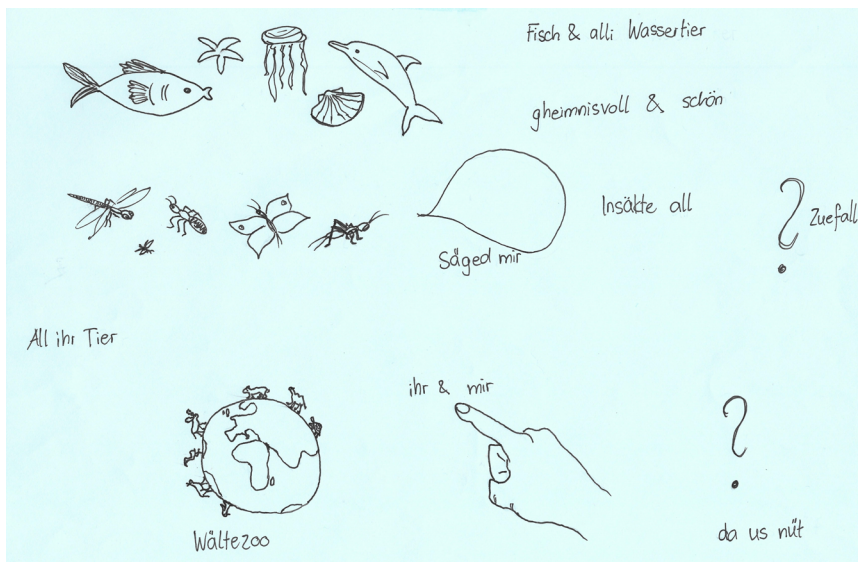 Fisch & alli Wassertier
gheimnisvoll & schön
Säged mir
Insäkte all
Zuefall
All ihr Tier
Wältezoo
ihr & mir
da us nüt